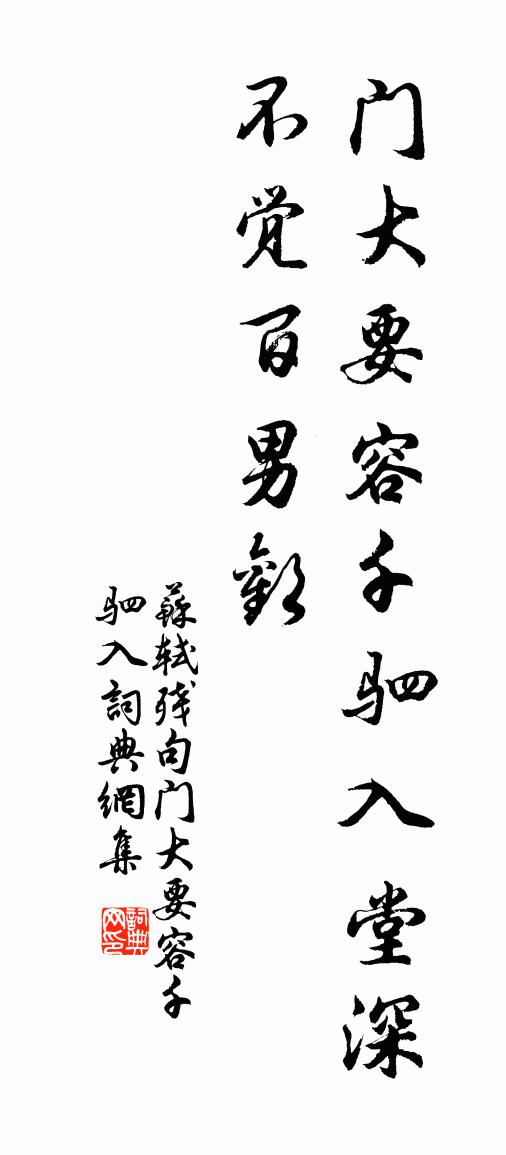 门大要容千驷入堂深
不觉百男歡
蘇轼残句门大要容千
驷入詞典網集
詞典网印